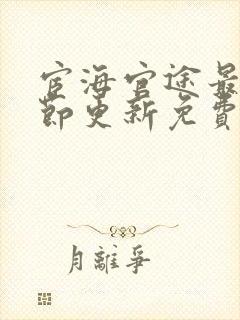 宦海官途最
节更新免费
月離爭